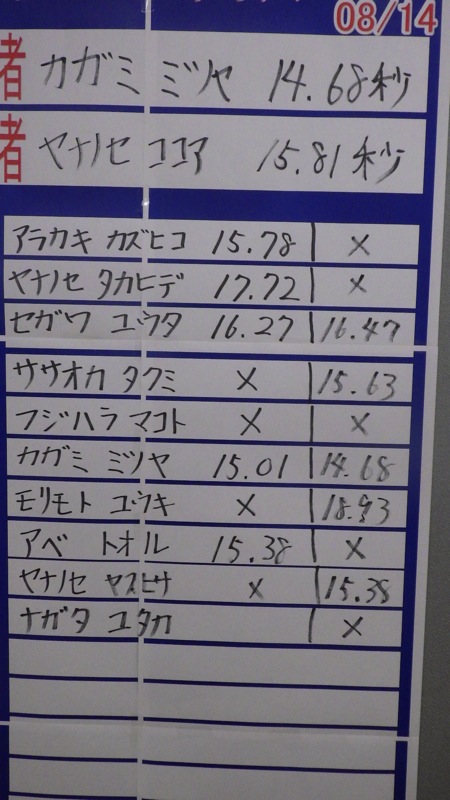 08/14
者 カガミ ミツヤ 14.68秒
者 ヤナノセ ココア 15.81秒
アラカキ カズヒコ 15.78 | ×
ヤナノセ タカヒデ 17.72 | ×
セガワ ユウタ 16.27 | 16.47
ササオカ タクミ × | 15.63
フジハラ マコト × | ×
カガミ ミツヤ 15.01 | 14.68
モリモト ユウキ × | 18.93
アベ トオル 15.38 | ×
ヤナノセ ヤスヒサ × | 15.38
ナガタ ユタカ | ×